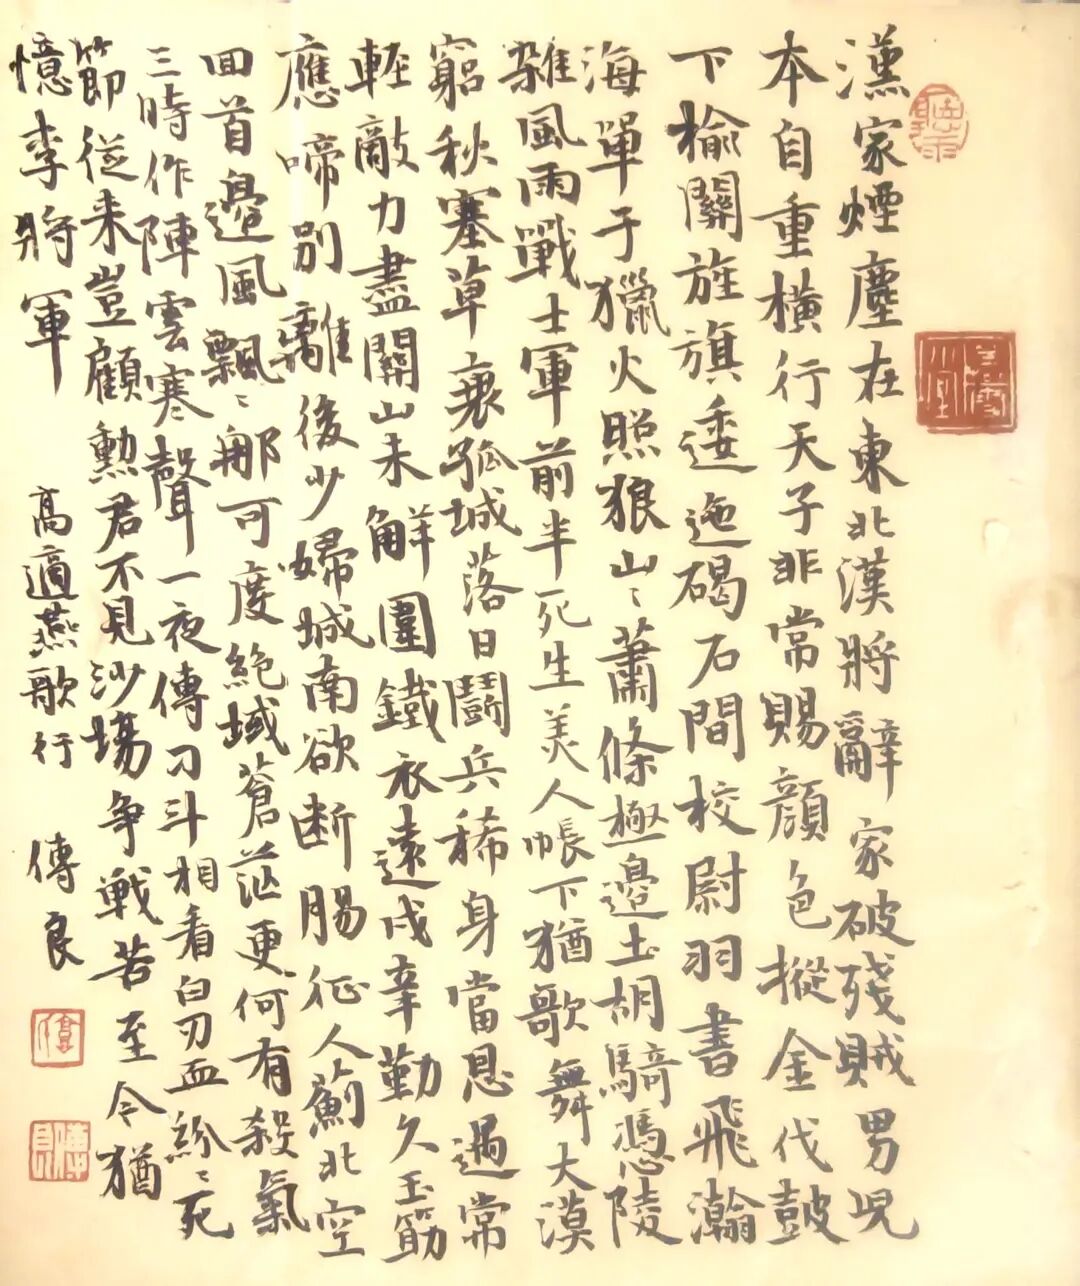 漢家煙塵在東北漢將辭家破殘賊男児
本自重橫行天子非常賜顏色摐金伐鼓
下榆關旌旗逶迤碣石間校尉羽書飛瀚
海單于獵火照狼山〻蕭條極邊土胡騎憑陵
雜風雨戰士軍前半死生美人帳下猶歌舞大漠
窮秋塞草衰孤城落日鬬兵稀身當恩遇常
輕敵力盡關山未解圍鐵衣遠戍辛勤久玉筯
應啼別離後少婦城南欲断腸征人薊北空
回首邊風飄〻那可度絕域蒼茫更何有殺氣
三時作陣雲寒聲一夜傳刁斗相看白刃血紛〻死
節從来豈顧勳君不見沙場爭戰苦至今猶
憶李將軍
高適燕歌行 傅良
傅
傅良